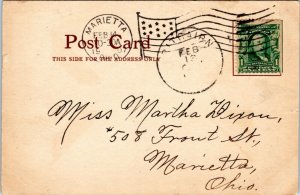 MARIETTA
FEB
Post Card
THIS SIDE FOR THE ADDRESS ONLY
FEB
Miss Martha Dixon,
#508 Front St.,
Marietta,
Ohio.